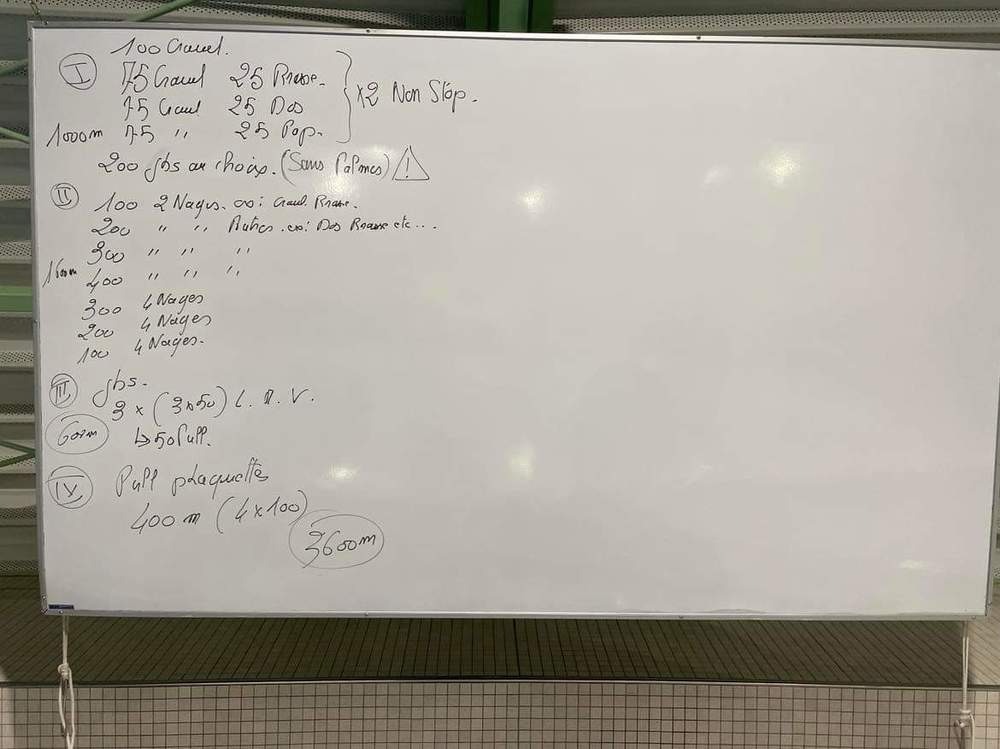 100 Crawl.
I 75 Crawl 25 Brasse. } x2 Non Stop.
75 Crawl 25 Dos
1000m 75 " 25 Pap.
200 Jbs au choix. (Sans Palmes) !
II 100 2 Nages. ex: Crawl Brasse.
200 " " Autres. ex: Dos Brasse etc...
300 " " "
1600m 400 " " "
300 4 Nages
200 4 Nages
100 4 Nages.
III Jbs.
3 x (3x50) L. R. V.
600m ↳ 50 Pull.
IV Pull plaquettes
400 m (4x100)
3600m